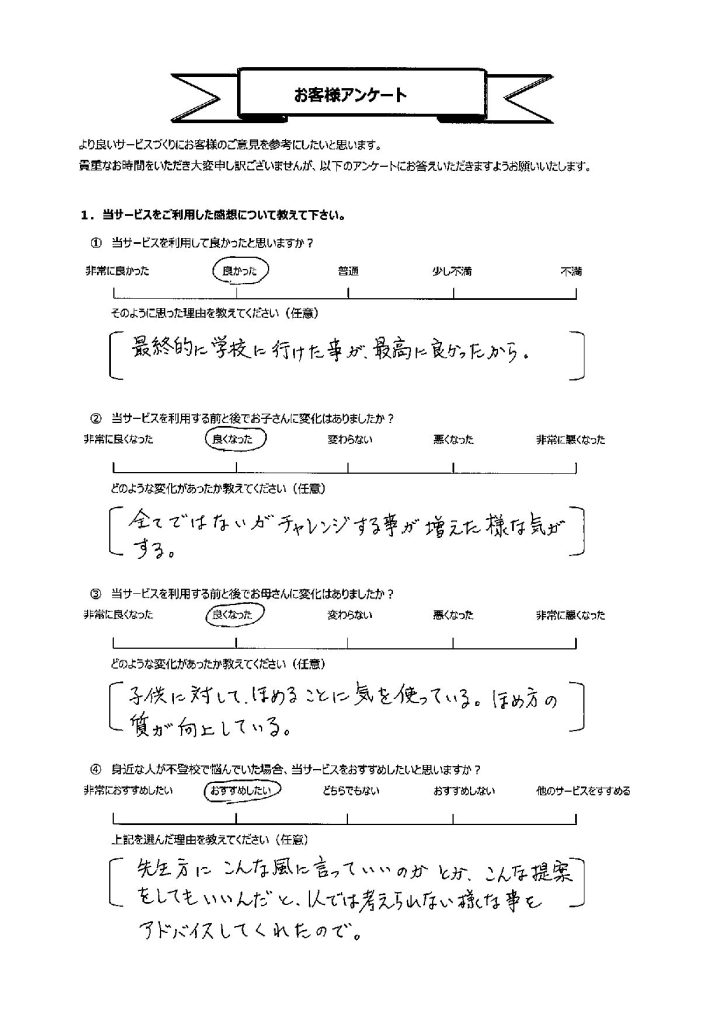 お客様アンケート
より良いサービスづくりにお客様のご意見を参考にしたいと思います。
貴重なお時間をいただき大変申し訳ございませんが、以下のアンケートにお答えいただきますようお願いいたします。
１．当サービスをご利用した感想について教えて下さい。
① 当サービスを利用して良かったと思いますか？
非常に良かった 良かった 普通 少し不満 不満
そのように思った理由を教えてください（任意）
最終的に学校に行けた事が、最高に良かったから。
② 当サービスを利用する前と後でお子さんに変化はありましたか？
非常に良くなった 良くなった 変わらない 悪くなった 非常に悪くなった
どのような変化があったか教えてください（任意）
全てではないがチャレンジする事が増えた様な気が
する。
③ 当サービスを利用する前と後でお母さんに変化はありましたか？
非常に良くなった 良くなった 変わらない 悪くなった 非常に悪くなった
どのような変化があったか教えてください（任意）
子供に対して、ほめることに気を使っている。ほめ方の
質が向上している。
④ 身近な人が不登校で悩んでいた場合、当サービスをおすすめしたいと思いますか？
非常におすすめしたい おすすめしたい どちらでもない おすすめしない 他のサービスをすすめる
上記を選んだ理由を教えてください（任意）
先生方に こんな風に言っていいのか とか、こんな提案
をしてもいいんだと、1人では考えられない様な事を
アドバイスしてくれたので。